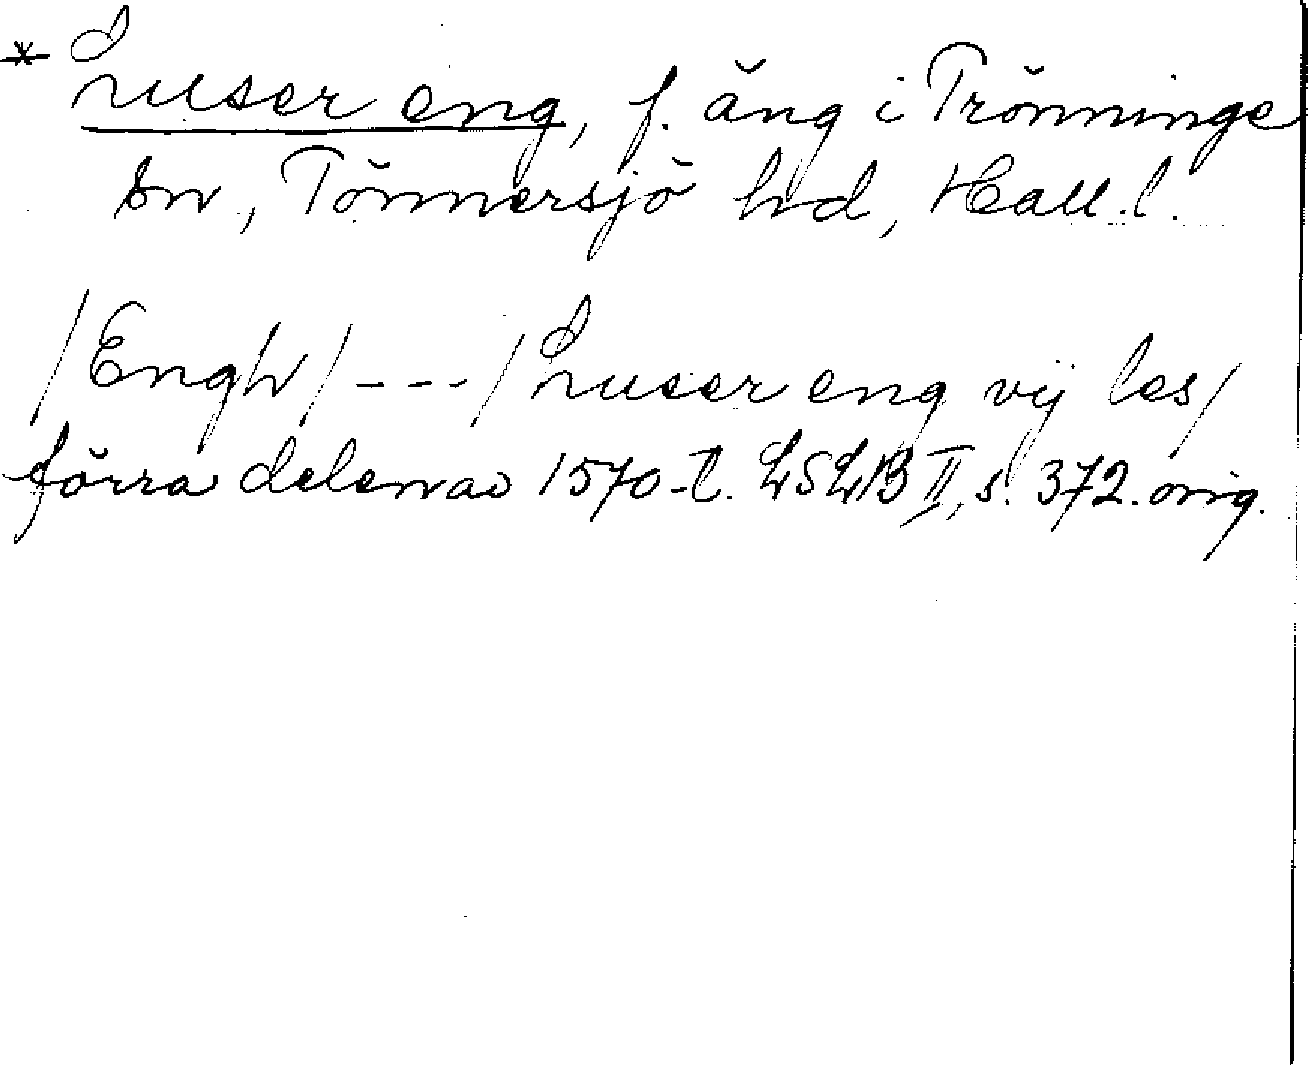 * Luser eng, f. äng i Trönninge
sn, Tönnersjö hd, Hall. l.
/Engh/---/Luser eng vij les/
förra delen av 1570-t. LSLB II, s. 372. orig.